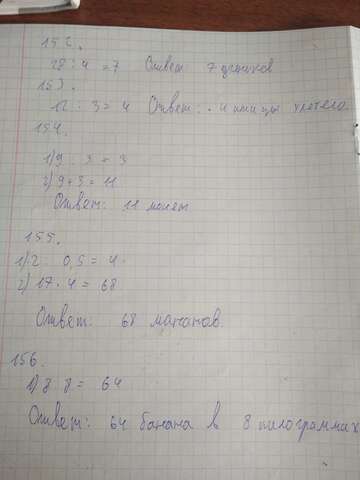 152.
28 : 4 = 7 Ответ 7 ящиков
153.
12 : 3 = 4 Ответ: 4 птицы улетело
154.
1) 9 : 3 = 3
2) 9 + 3 = 11
Ответ: 11 монет
155.
1) 2 : 0,5 = 4
2) 17 · 4 = 68
Ответ: 68 мананов
156.
1) 8 8 = 64
Ответ: 64 банана в 8 килограммах